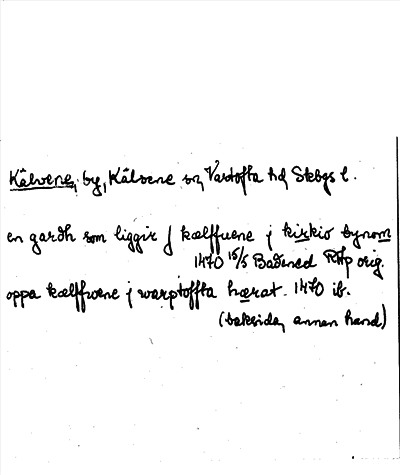 Kälvene, by, Kälvene sn, Vartofta hd, Skbgs l.
en gardh som liggir j kælffuene j kirkio bynom
1470 15/5 Badened RAp orig.
oppa kælffwene j warptoffta hærat. 1470 ib.
(baksida, annan hand)